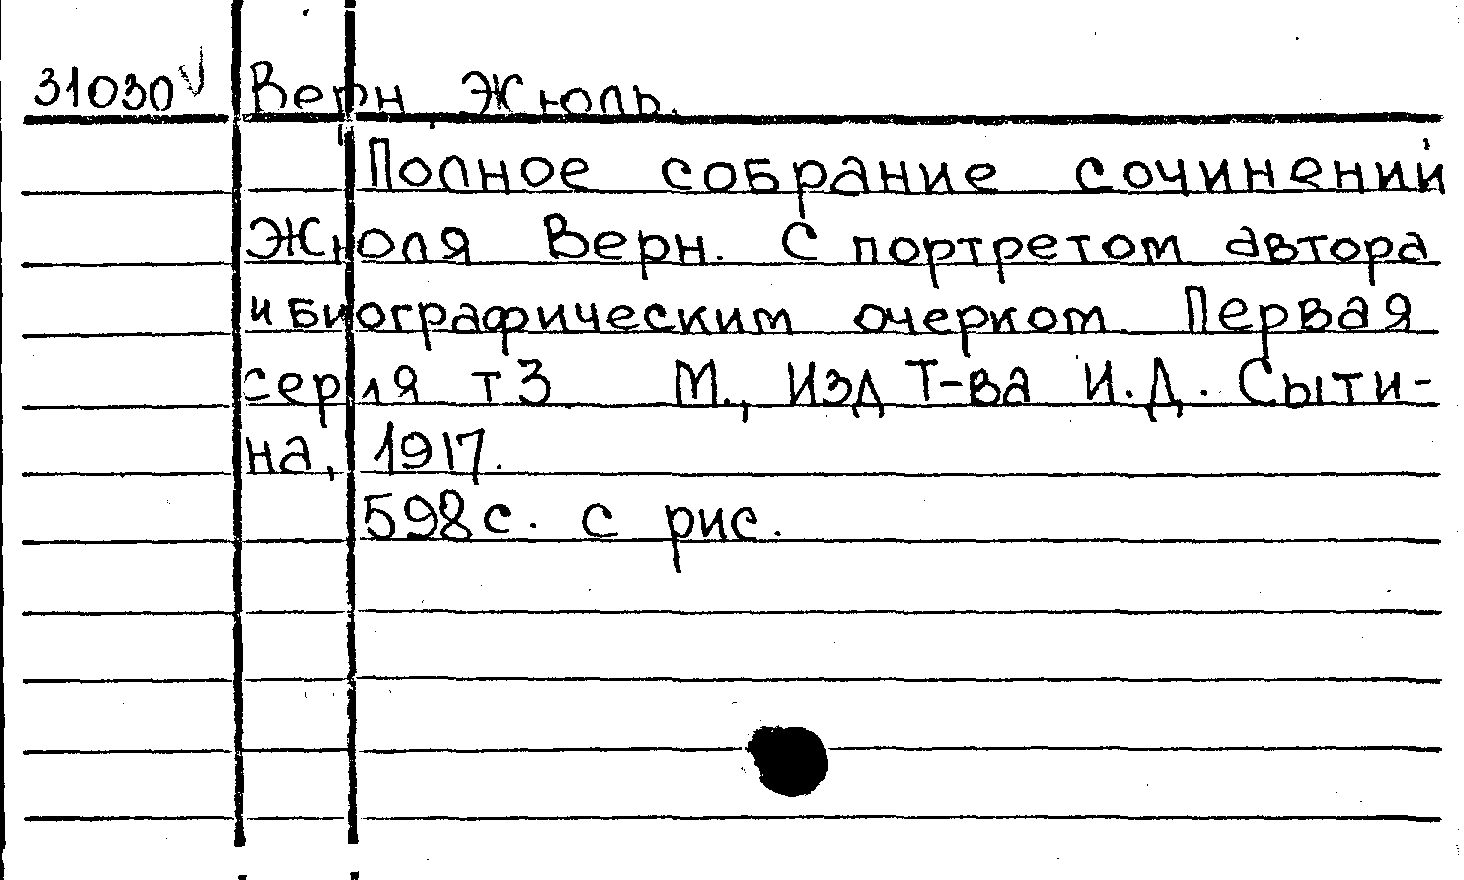 31030 √ Верн, Жюль.
Полное собрание сочинений
Жюля Верн. С портретом автора
и биографическим очерком Первая
серия т 3 М., Изд Т-ва И.Д. Сыти-
на, 1917.
598 с. с рис.